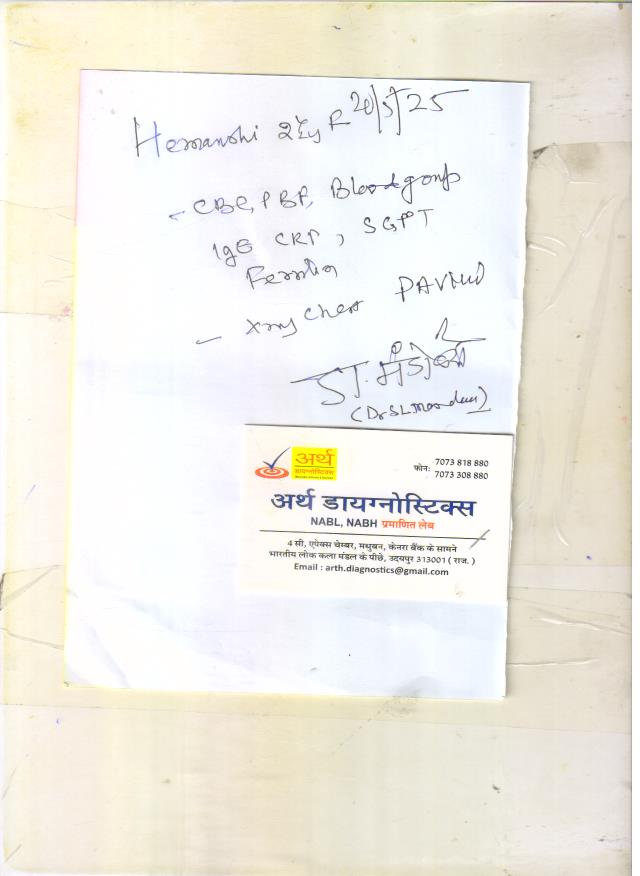 Hemanshi 2½y F 20/5/25
- CBC, PBF, Blood group
IgE CRP, SGPT
Ferritin
- Xray Chest PA View
डा. मंडोवरा
(Dr SL
अर्थ
डायग्नोस्टिक्स
फोन: 7073 818 880
7073 308 880
अर्थ डायग्नोस्टिक्स
NABL, NABH प्रमाणित लेब
4 सी, एपेक्स चेम्बर, मधुबन, केनरा बैंक के सामने
भारतीय लोक कला मंडल के पीछे, उदयपुर 313001 ( राज. )
Email : arth.diagnostics@gmail.com